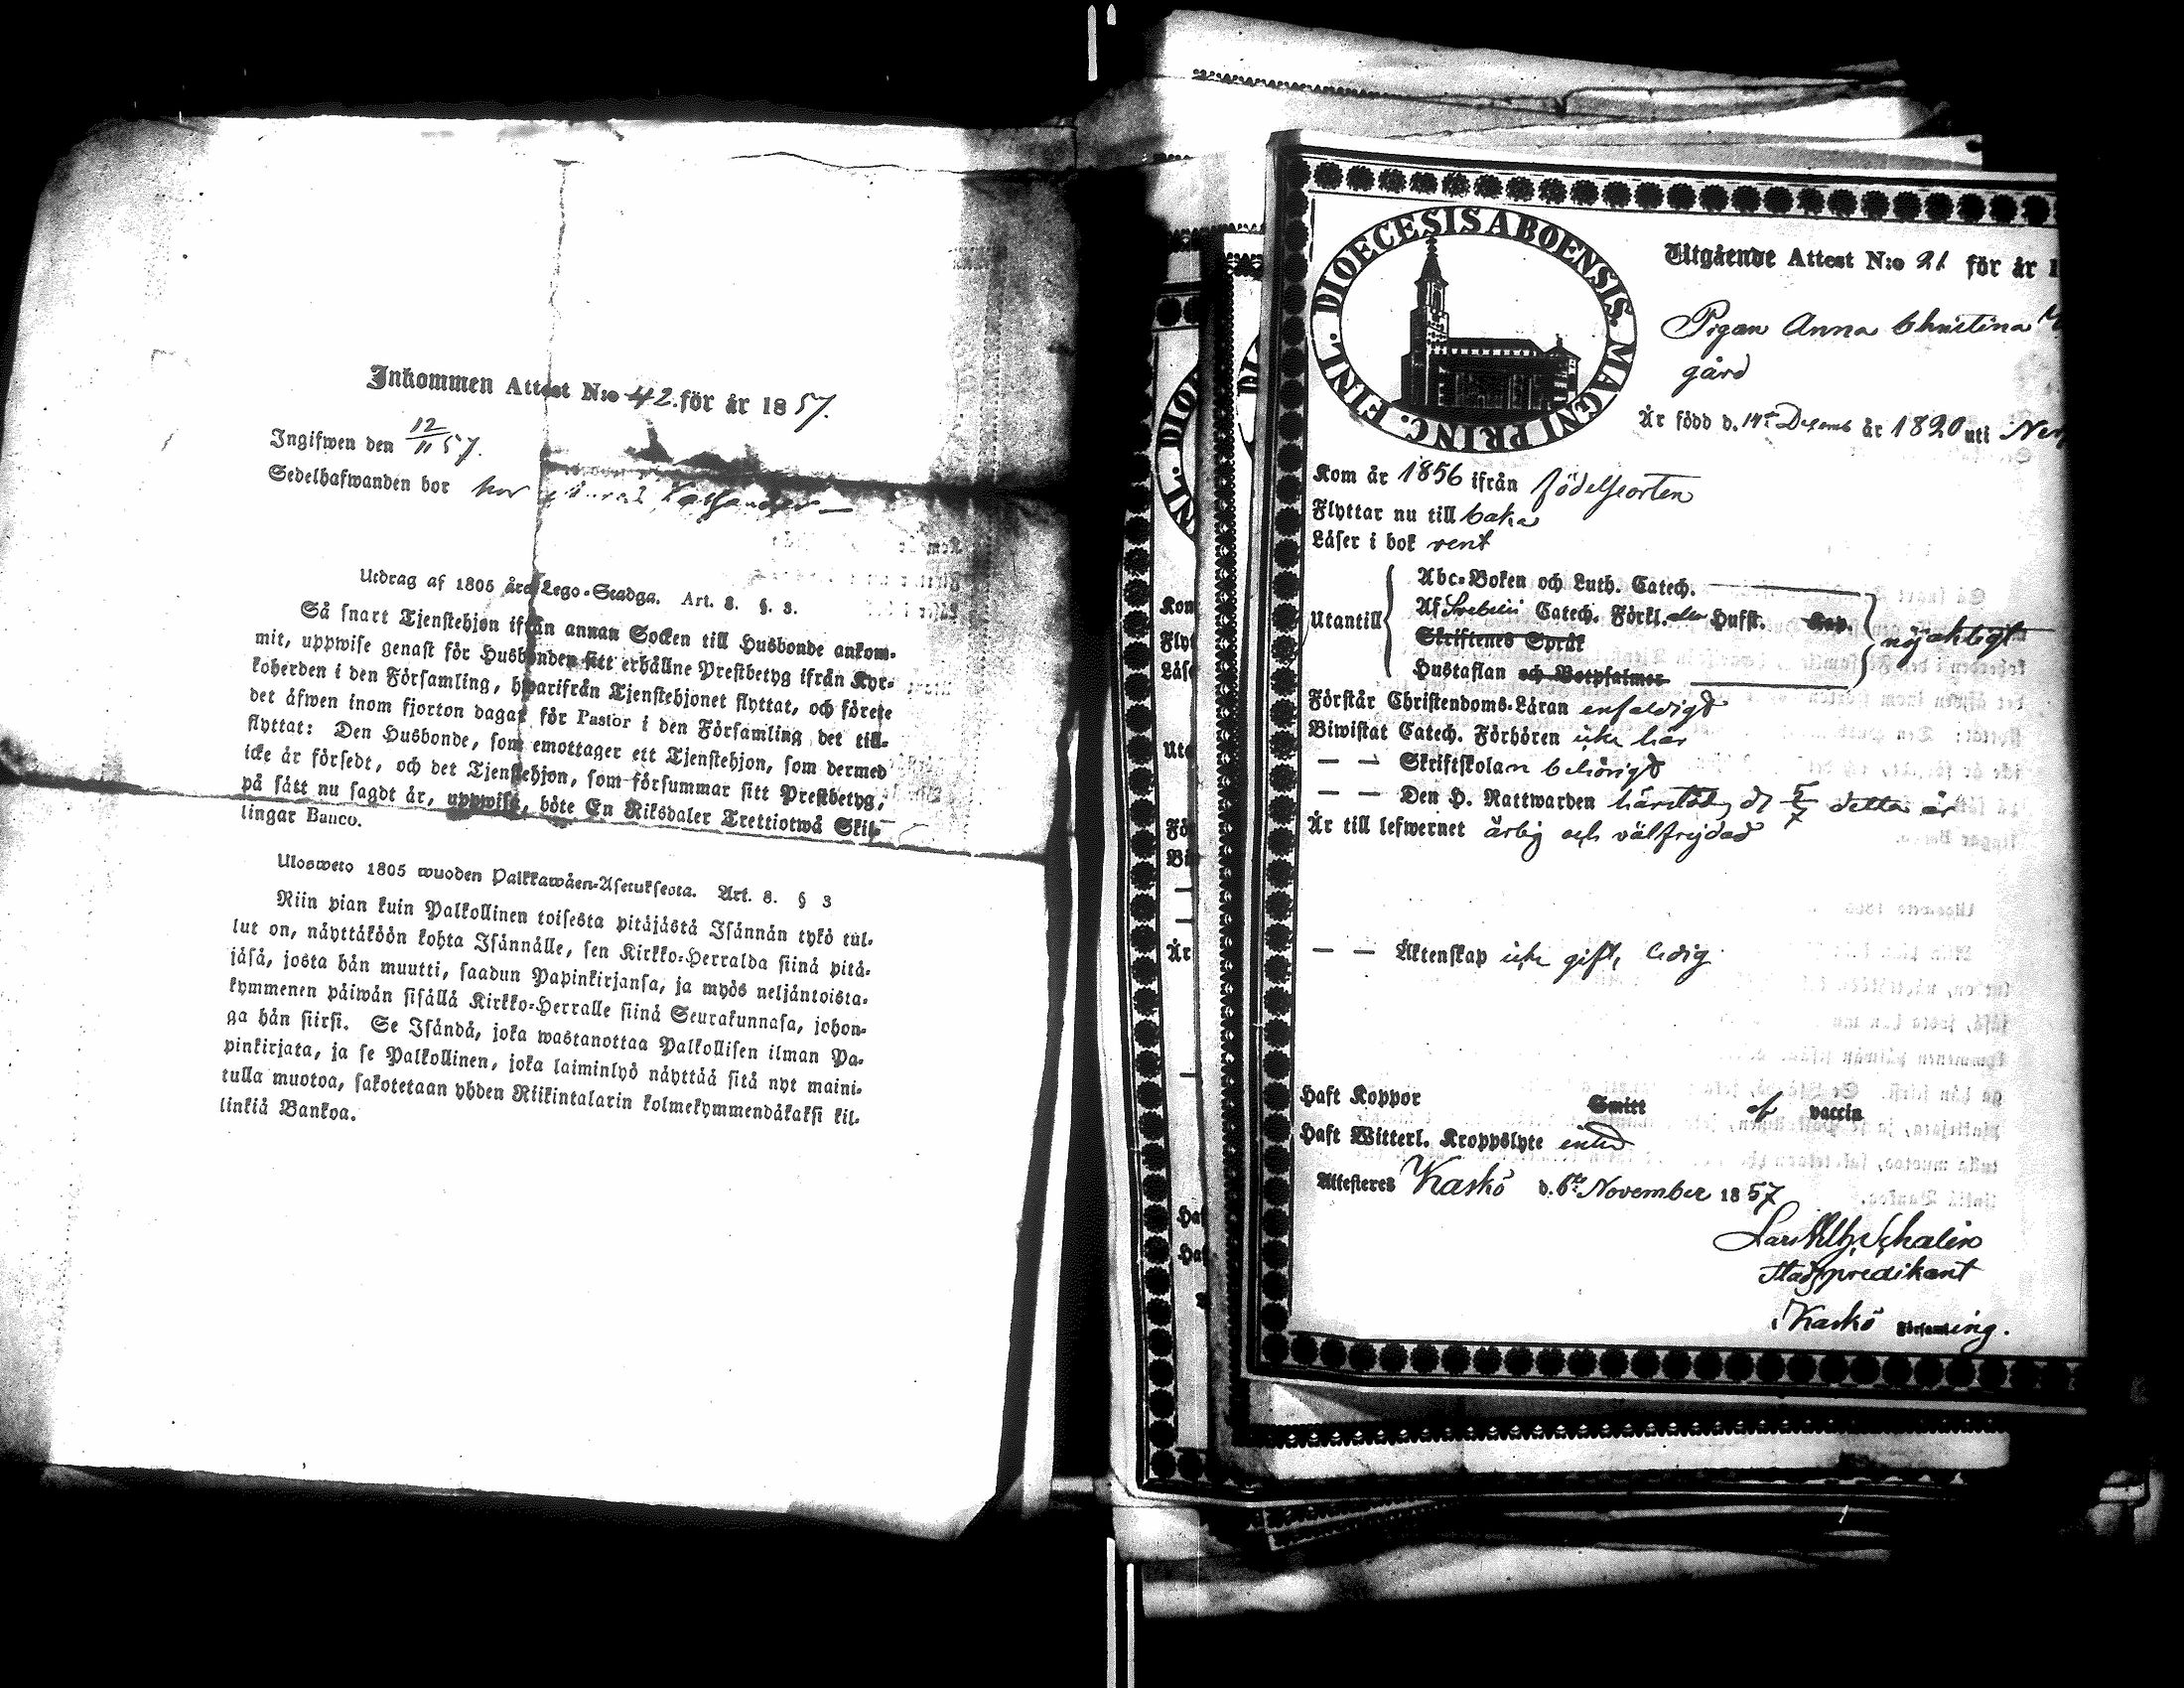 Inkommen Attest N:o 42. för år 1857.
Ingifwen den 12/11 57.
Sedelhafwanden bor hos
Utdrag af 1805 års Lego-Stadga. Art. 8. §. 3.
Så snart Tjenstehjon ifrån annan Socken till Husbonde ankom-
mit, uppwise genast för Husbonden sitt erhållne Prestbetyg ifrån Kyr-
koherden i den Församling, hwarifrån Tjenstehjonet flyttat, och förete
det åfwen inom fjorton dagar för Pastor i den Församling det till-
flyttat: Den Husbonde, som emottager ett Tjenstehjon, som dermed
icke är försedt, och det Tjenstehjon, som försummar sitt Prestbetyg,
på sätt nu sagdt är, uppwisa, böte En Riksdaler Trettiotwå Skil-
lingar Banco.
Ulosweto 1805 wuoden Palkkawäen-Asetuksesta. Art. 8. § 3
Niin pian kuin Palkollinen toisesta pitäjästä Isännän tykö tul-
lut on, näyttäköön kohta Isännälle, sen Kirkko-Herralda siinä pitä-
jäsä, josta hän muutti, saadun Papinkirjansa, ja myös neljäntoista-
kymmenen päiwän sisällä Kirkko-Herralle siinä Seurakunnasa, johon-
ga hän siirsi. Se Isändä, joka wastanottaa Palkollisen ilman Pa-
pinkirjata, ja se Palkollinen, joka laiminlyö näyttää sitä nyt maini-
tulla muotoa, sakotetaan yhden Riikintalarin kolmekymmendäkaksi kil-
linkiä Bankoa.
DIOECESIS ABOENSIS. MAGNI PRINC. FINL.
Utgående Attest N:o 21 för år 1
Pigan Anna Christina
gård
Är född d. 14de Decemb år 1820 uti
Kom år 1856 ifrån födelseorten
Flyttar nu till baka
Läser i bok rent
Utantill
Abc-Boken och Luth. Catech.
Af Svebelii Catech. Förkl. Hufst. Kap.
Skriftenes Språk
Hustaflan och Botpsalmer
nöjaktigt
Förstår Christendoms-Läran enfaldigt
Biwistat Catech. Förhören icke här
— — Skriftskolan behörigt
— — Den H. Nattwarden härstädes d 5/7 detta år
Är till lefwernet ärlig och välfrejdad
— — Äktenskap icke gift, ledig
Haft Koppor Smitt af vaccin
Haft Witterl. Kroppslyte intet
Attesteres Kaskö d. 6te November 1857
Lars Schalin
Stadspredikant
i Kaskö Församling.